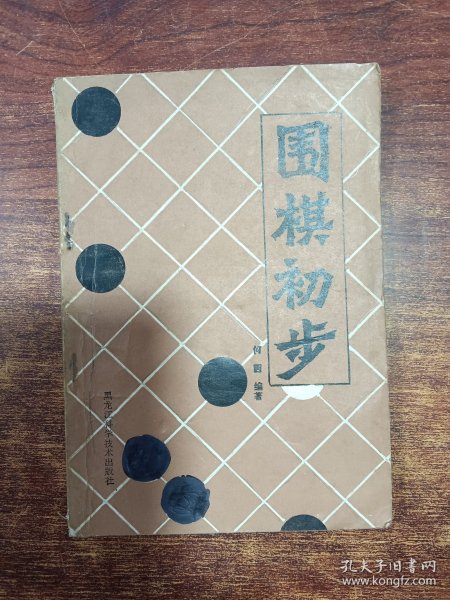 围棋初步
何圆 编著
黑龙江科学技术出版社
孔夫子旧书网
www.kongfz.com